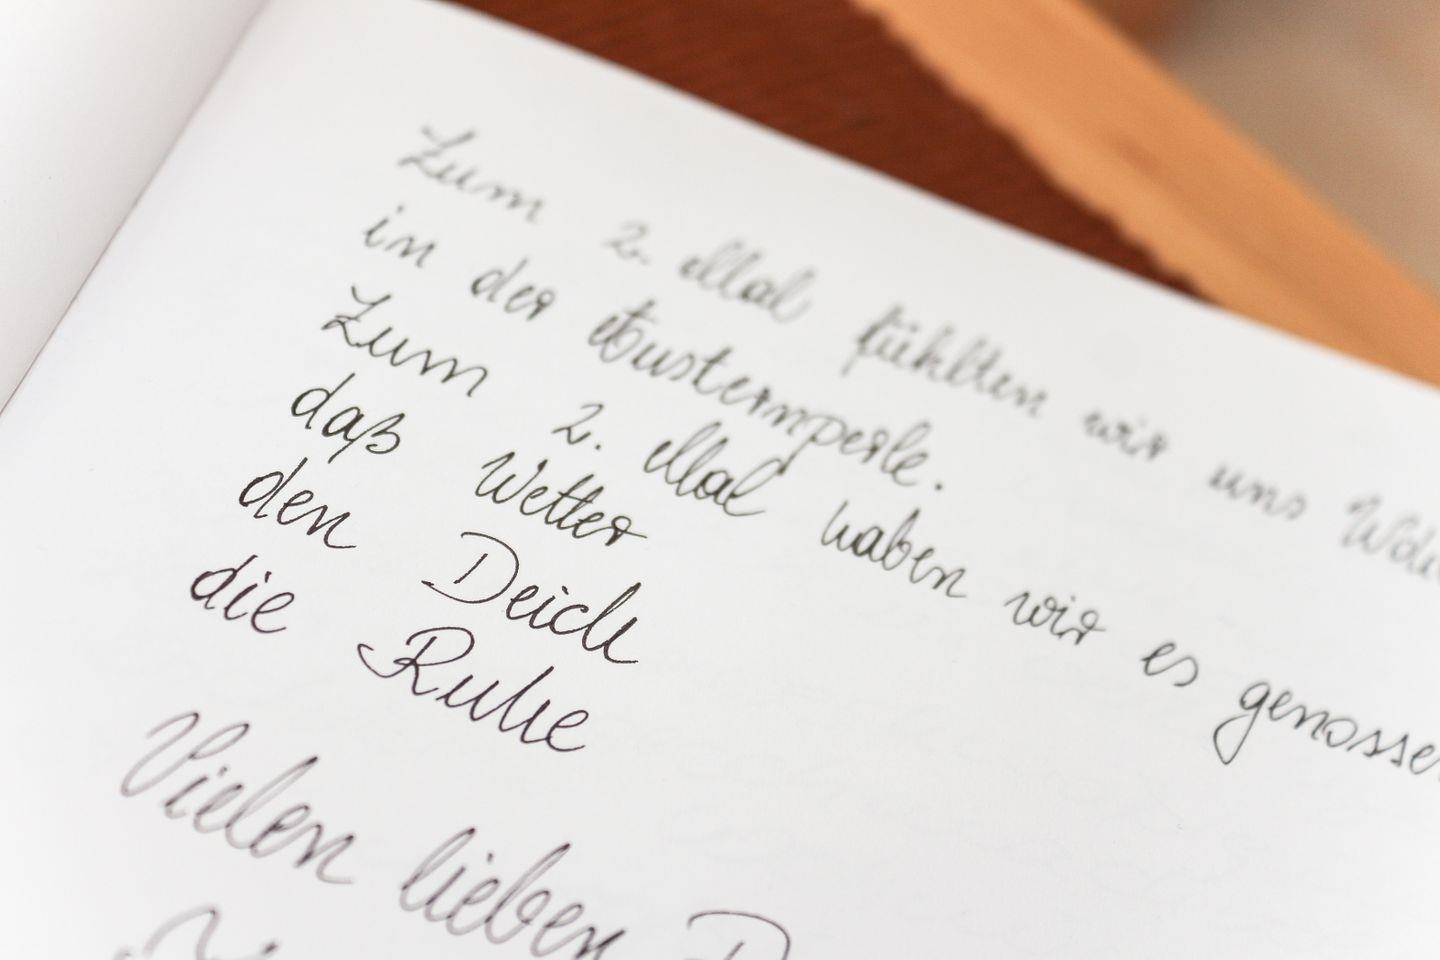 Zum 2. Mal fühlten wir uns
in der Austernperle.
Zum 2. Mal haben wir es
daß Wetter
den Deich
die Ruhe
Vielen lieben